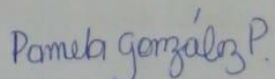 Pamela González P.